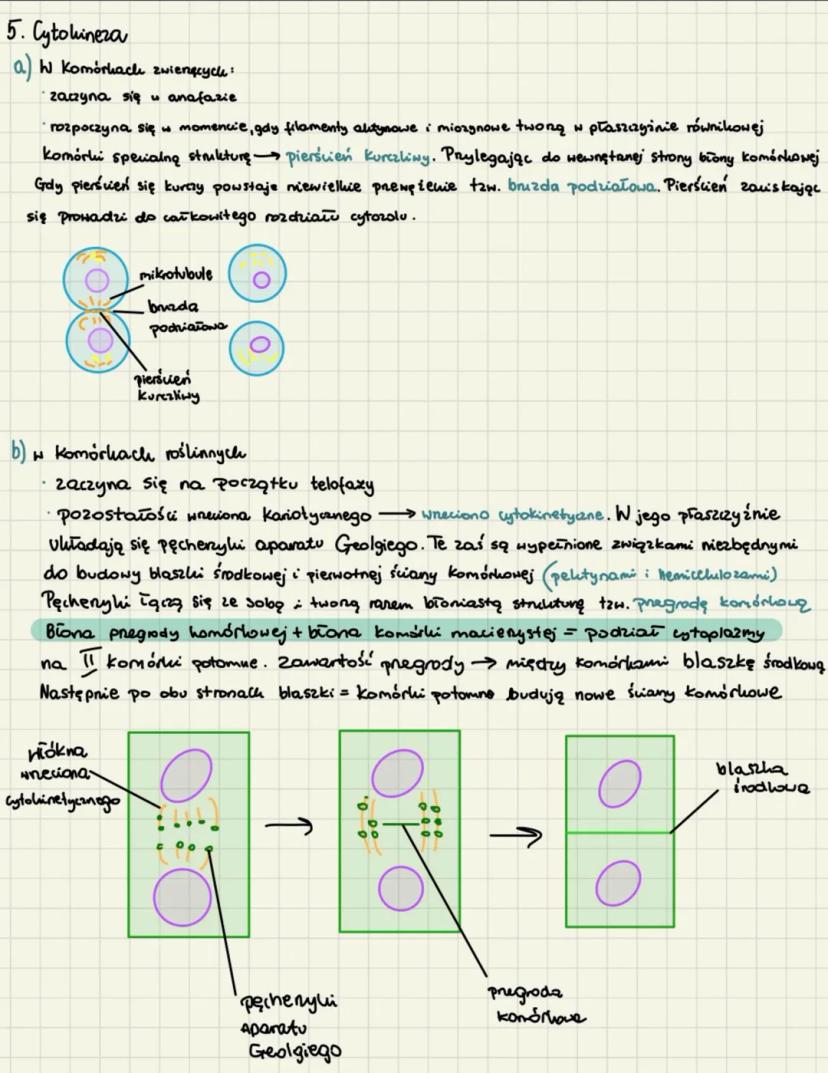 5. Cytokineza
a) W komórkach zwierzęcych:
· zaczyna się w anafazie
· rozpoczyna się w momencie, gdy filamenty aktynowe i miozynowe tworzą w płaszczyźnie równikowej
komórki specjalną strukturę → pierścień kurczliwy. Przylegając do wewnętrznej strony błony komórkowej
Gdy pierścień się kurczy powstaje niewielkie przewężenie tzw. bruzda podziałowa. Pierścień zaciskając
się prowadzi do całkowitego rozdziału cytozolu.
mikrotubule
bruzda
podziałowa
pierścień
kurczliwy
b) w komórkach roślinnych
· zaczyna się na początku telofazy
· pozostałości wrzeciona kariotycznego → wrzeciono cytokinetyczne. W jego płaszczyźnie
układają się pęcherzyki aparatu Geolgiego. Te zaś są wypełnione związkami niezbędnymi
do budowy blaszki środkowej i pierwotnej ściany komórkowej (pektynami i hemicelulozami)
Pęcherzyki łączą się ze sobą i tworzą razem błoniastą strukturę tzw. przegrodę komórkową
Błona przegrody komórkowej + błona komórki macierzystej = podział cytoplazmy
na II komórki potomne. Zawartość przegrody → między komórkami blaszkę środkową
Następnie po obu stronach blaszki = komórki potomne budują nowe ściany komórkowe
włókna
wrzeciona
cytokinetycznego
blaszka
środkowa
pęcherzyki
aparatu
Geolgiego
przegroda
komórkowa